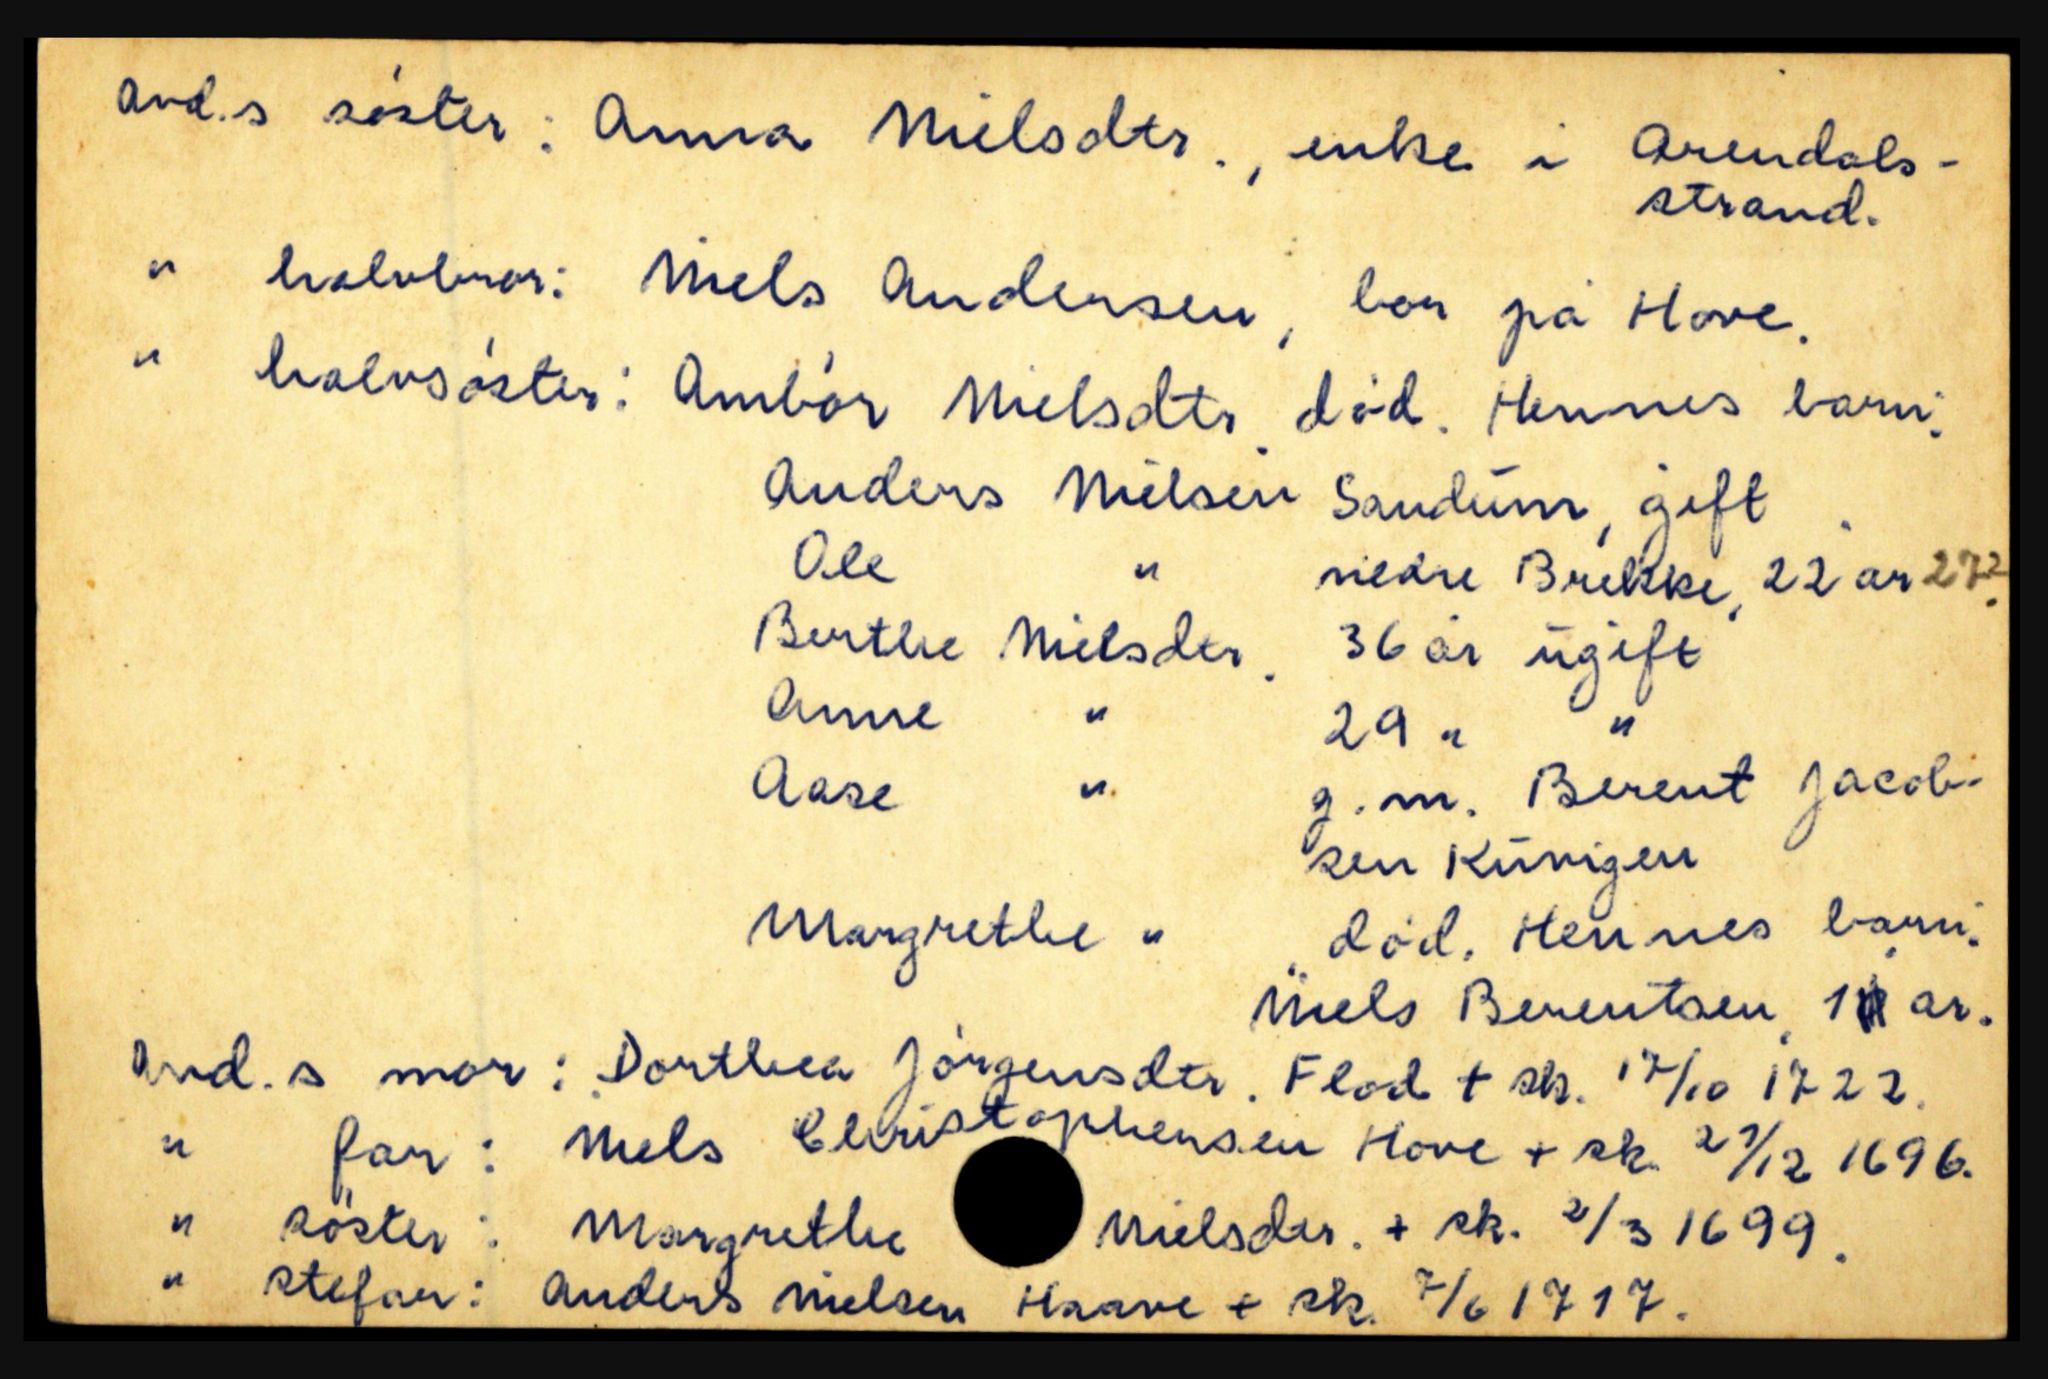 Avd.s söster: Anna Nielsdtr., enke i Arendals-
strand.
" halvbror: Niels Andersen, bor på Hove.
" halvsöster: Ambór Nielsdtr. död. Hennes barn:
Anders Nielsen Sandum, gift.
Ole " nedre Brekke, 22 år 27?.
Berthe Nielsdtr. 36 år ugift
Anne " 29 " "
Aase " g.m. Berent Jacob-
sen Kuvigen
Margrethe " död. Hennes barn:
Niels Berentsen, år.
Avd.s mor: Dorthea Jörgensdtr. Flod + sk. 17/10 1722.
" far: Niels Christophensen Hove + sk. 27/12 1696.
" söster: Margrethe Nielsdtr. + sk. 2/3 1699.
" stefar: Anders Nielsen Haave + sk. 7/6 1717.